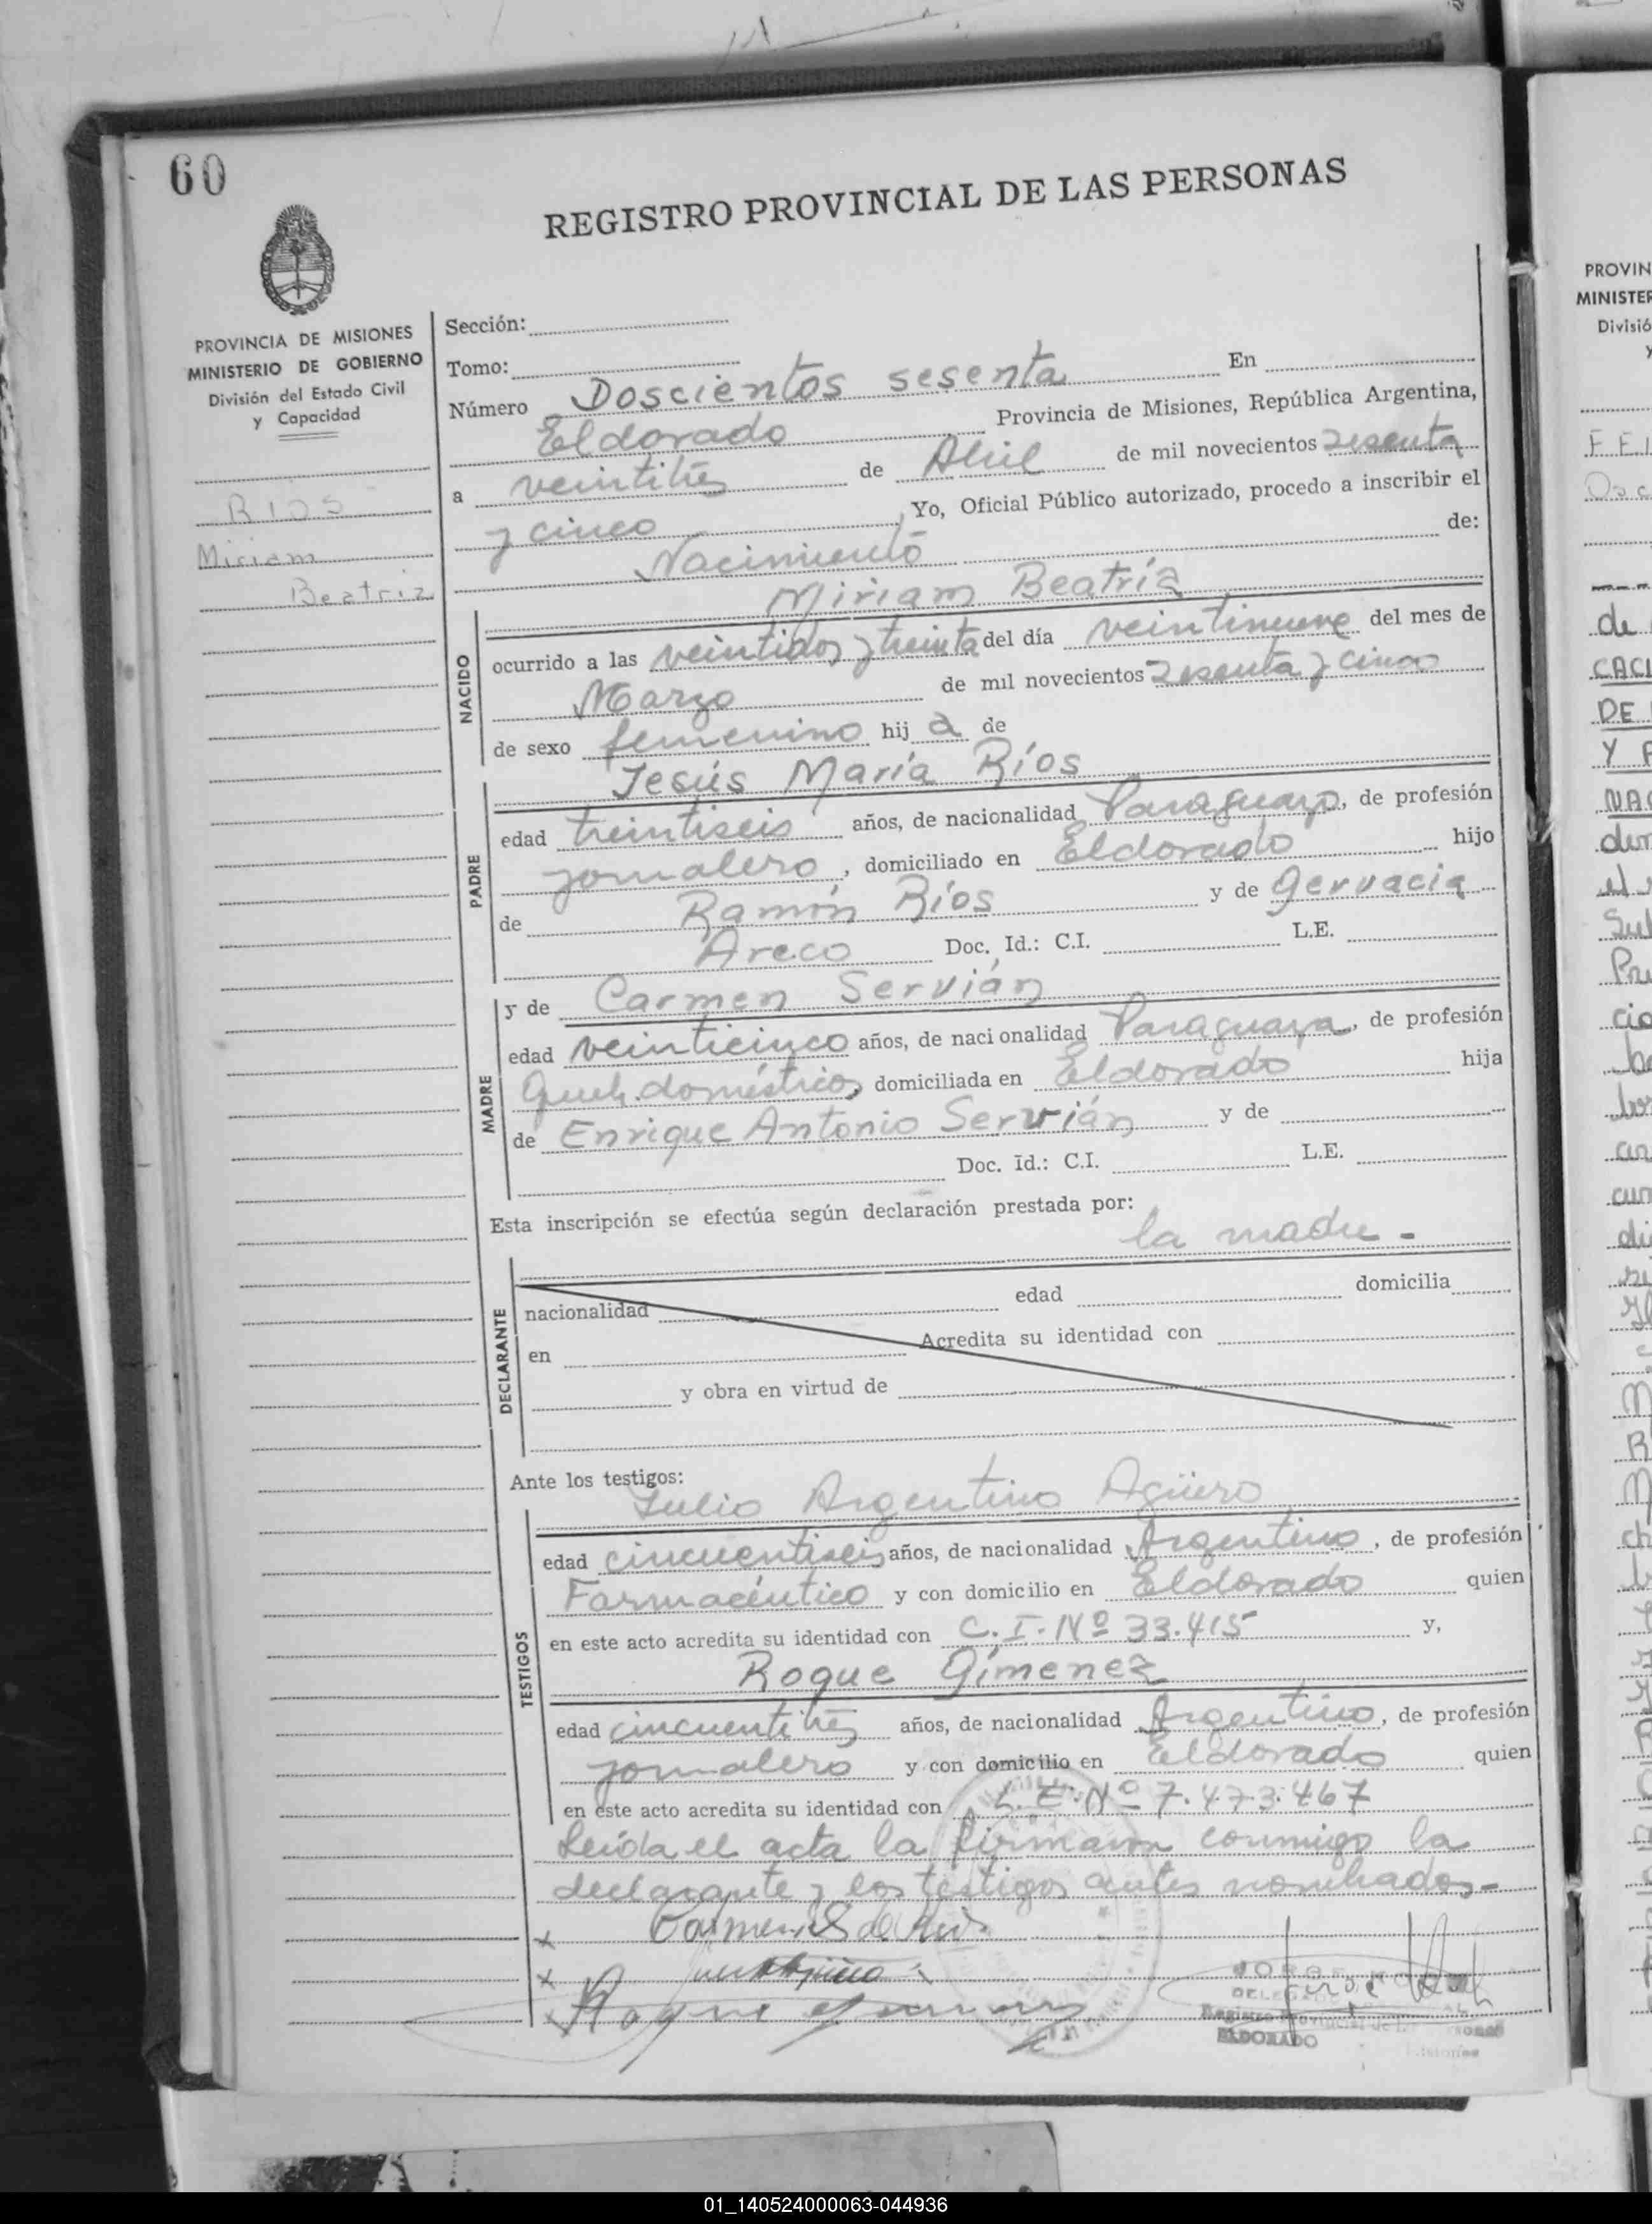 60
REGISTRO PROVINCIAL DE LAS PERSONAS
PROVINCIA DE MISIONES
MINISTERIO DE GOBIERNO
División del Estado Civil
y Capacidad
RIOS
Miriam
Beatriz
Sección:
Tomo:
Número Doscientos sesenta En
Eldorado Provincia de Misiones, República Argentina,
a veintitrés de Abril de mil novecientos sesenta
y cinco Yo, Oficial Público autorizado, procedo a inscribir el
Nacimiento de:
Miriam Beatríz
NACIDO
ocurrido a las veintidos y treinta del día veintinueve del mes de
Marzo de mil novecientos sesenta y cinco
de sexo femenino hij a de
Jesús María Ríos
PADRE
edad treintiseis años, de nacionalidad Paraguayo, de profesión
jornalero, domiciliado en Eldorado hijo
de Ramón Ríos y de Gervacia
Areco Doc. Id.: C.I. L.E.
y de Carmen Servián
MADRE
edad veinticinco años, de nacionalidad Paraguaya, de profesión
Queh. domésticos, domiciliada en Eldorado hija
de Enrique Antonio Servián y de
Doc. Id.: C.I. L.E.
Esta inscripción se efectúa según declaración prestada por:
la madre -
DECLARANTE
nacionalidad edad domicilia
en Acredita su identidad con
y obra en virtud de
Ante los testigos:
Julio Argentino Agüero
TESTIGOS
edad cincuentiseis años, de nacionalidad Argentino, de profesión
Farmacéutico y con domicilio en Eldorado quien
en este acto acredita su identidad con C.I. Nº 33.415 y,
Roque Gímenez
edad cincuentitrés años, de nacionalidad Argentino, de profesión
jornalero y con domicilio en Eldorado quien
en este acto acredita su identidad con L.E. Nº 7.473.467
Leída el acta la firmaron conmigo la
declarante y los testigos antes nombrados-
x Carmen S de Rios
x
x Roque Gimenez
JORGE
Registro Provincial de
ELDORADO
PROVIN
MINISTER
Divisió
y
de
CACI
DE
Y
NAC
01_140524000063-044936